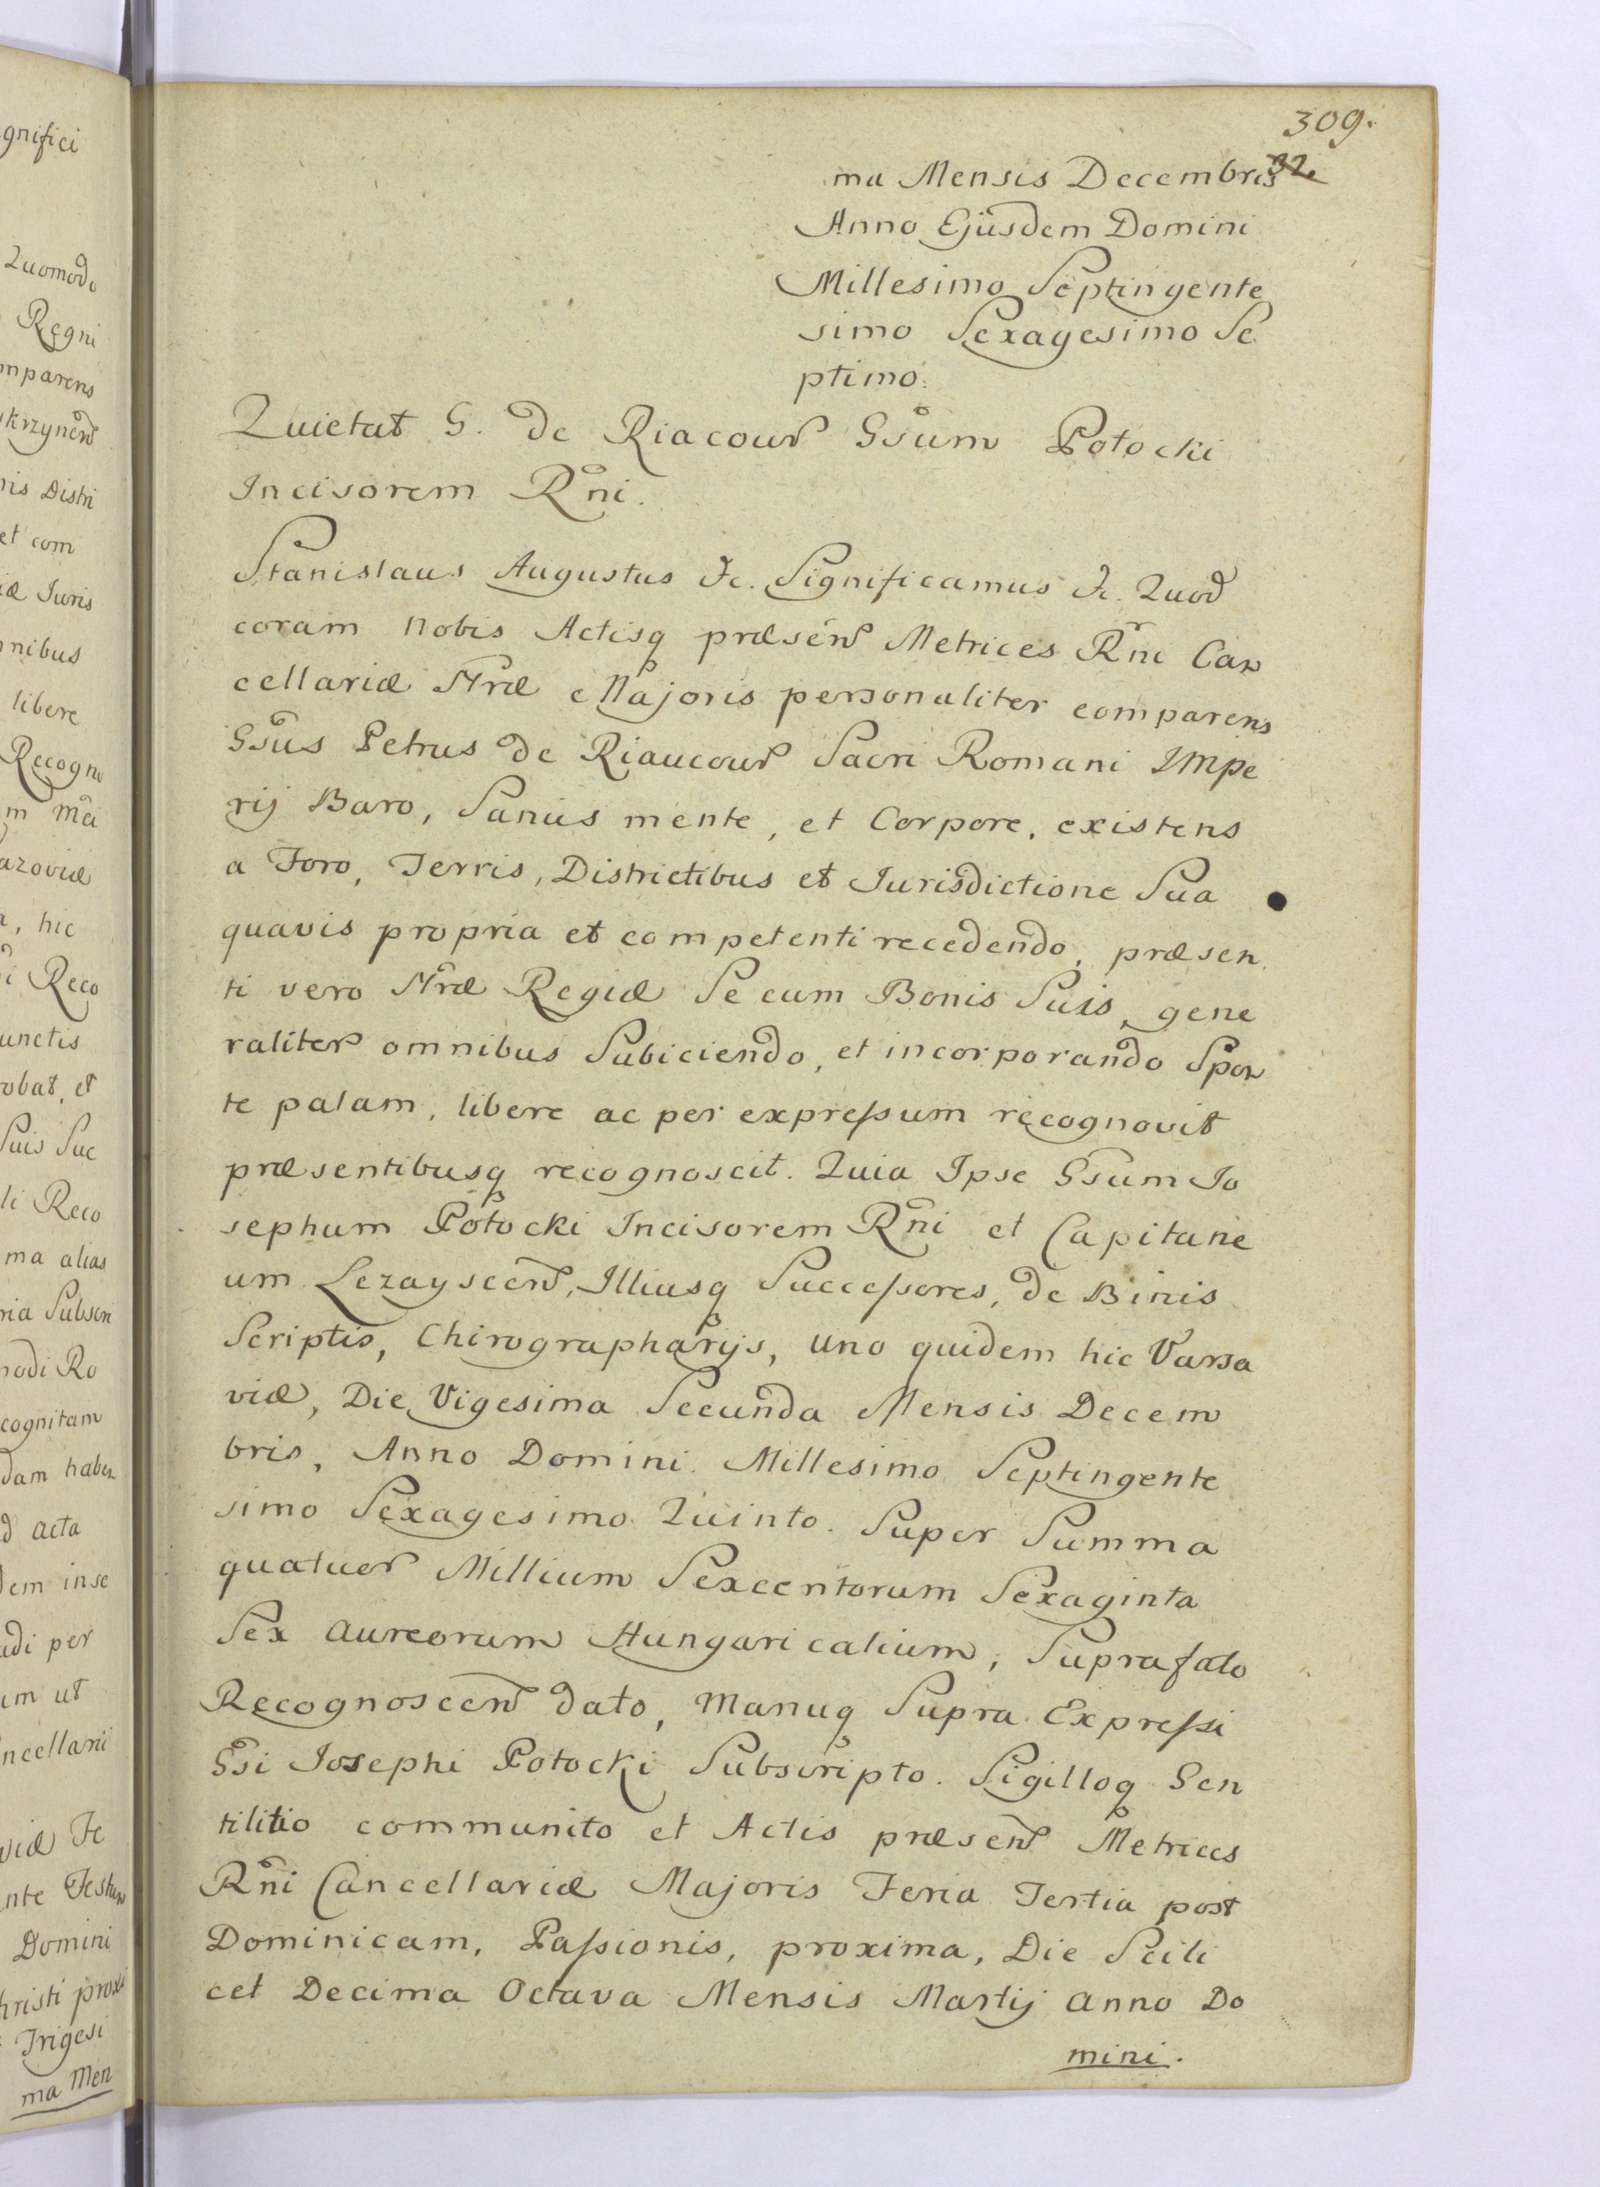 309.
32.
ma Mensis Decembris
Anno Ejusdem Domini
Millesimo Septingente
simo Sexagesimo Se
ptimo.
Quietat G. de Riacour Gsum Potocki
Incisorem Rni.
Stanislaus Augustus &c. Significamus &c. Quod
coram Nobis Actisq præsen Metrices Rni Can
cellariæ Nræ Majoris personaliter comparens
Gsus Petrus de Riaucour Sacri Romani Impe
rij Baro, Sanus mente, et Corpore, existens
a Foro, Terris, Districtibus et Jurisdictione Sua
quavis propria et competenti recedendo, præsen
ti vero Nræ Regiæ Se cum Bonis Suis, gene
raliter omnibus Subiciendo, et incorporando Spon
te palam, libere ac per expressum recognovit
præsentibusq recognoscit. Quia Ipse Gsum Io
sephum Potocki Incisorem Rni et Capitane
um Lezayscen, Illiusq Successores, de Binis
Scriptis, Chirographarijs, uno quidem hic Varsa
viæ, Die Vigesima Secunda Mensis Decem
bris, Anno Domini Millesimo Septingente
simo Sexagesimo Quinto. Super Summa
quatuor Millium Sexcentorum Sexaginta
Sex Aureorum Hungaricalium, Suprafato
Recognoscen dato, Manuq Supra Expressi
Gsi Josephi Potocki Subscripto. Sigilloq Gen
tilitio communito et Actis præsen Metrices
Rni Cancellariæ Majoris Feria Tertia post
Dominicam, Passionis, proxima, Die Scili
cet Decima Octava Mensis Martij Anno Do
mini.
gnifici
Quomodo
Regni
mparens
is Distri
et com
iæ Juris
nibus
libere
Recogno
azoviæ
, hic
i Reco
unctis
robat, et
Suis Suc
li Reco
ma alias
ria Subscri
modi Ro
cognitam
dam haben
d acta
dem inse
adi per
um ut
ncellarii
viæ Fe
nte Festum
Domini
hristi proxi
Trigesi
ma Men